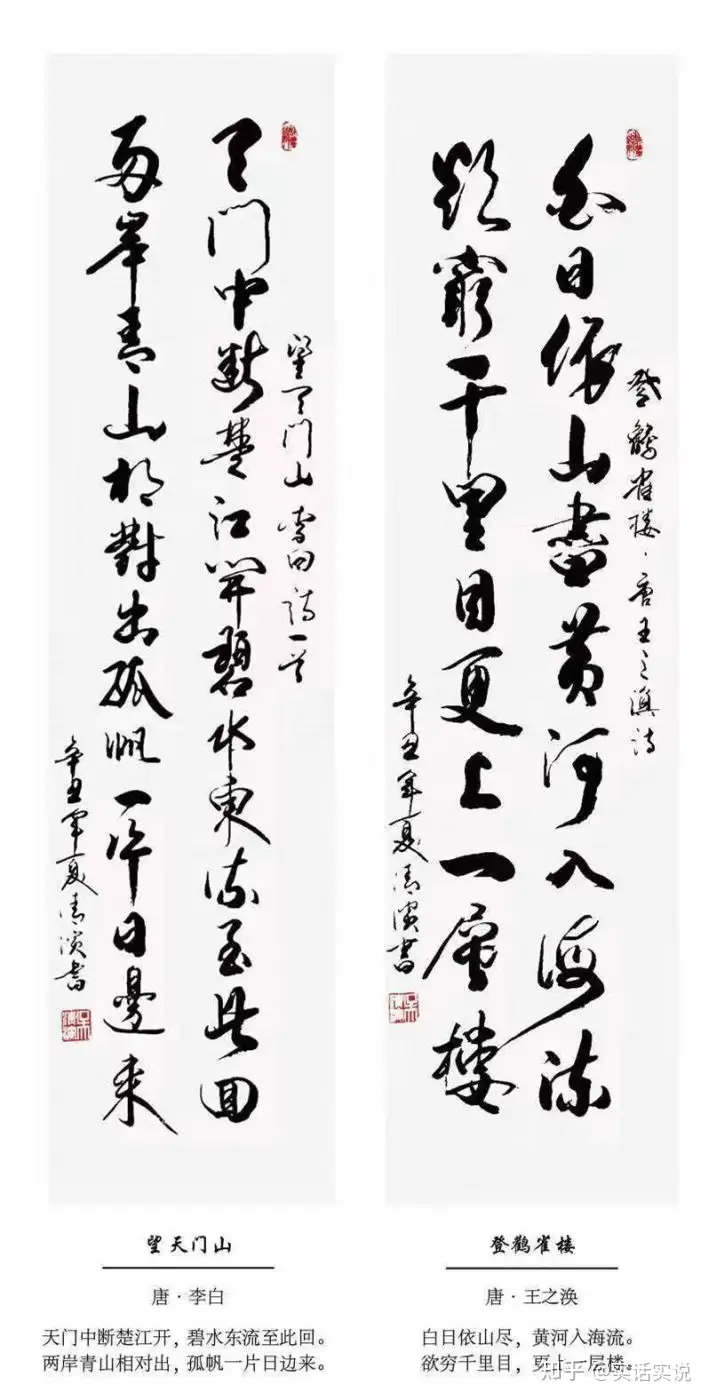 望天門山 李白詩一首
天門中斷楚江開碧水東流至此回
兩岸青山相對出孤帆一片日邊來
辛丑年夏清書
登鸛雀樓·唐王之渙詩
白日依山盡黃河入海流
欲窮千里目更上一層樓
辛丑年夏清書
望天门山
唐·李白
天门中断楚江开，碧水东流至此回。
两岸青山相对出，孤帆一片日边来。
登鹳雀楼
唐·王之涣
白日依山尽，黄河入海流。
欲穷千里目，更上一层楼。
知乎 @实话实说